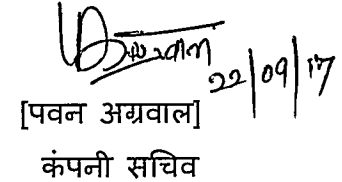 22/09/17
[पवन अग्रवाल]
कंपनी सचिव